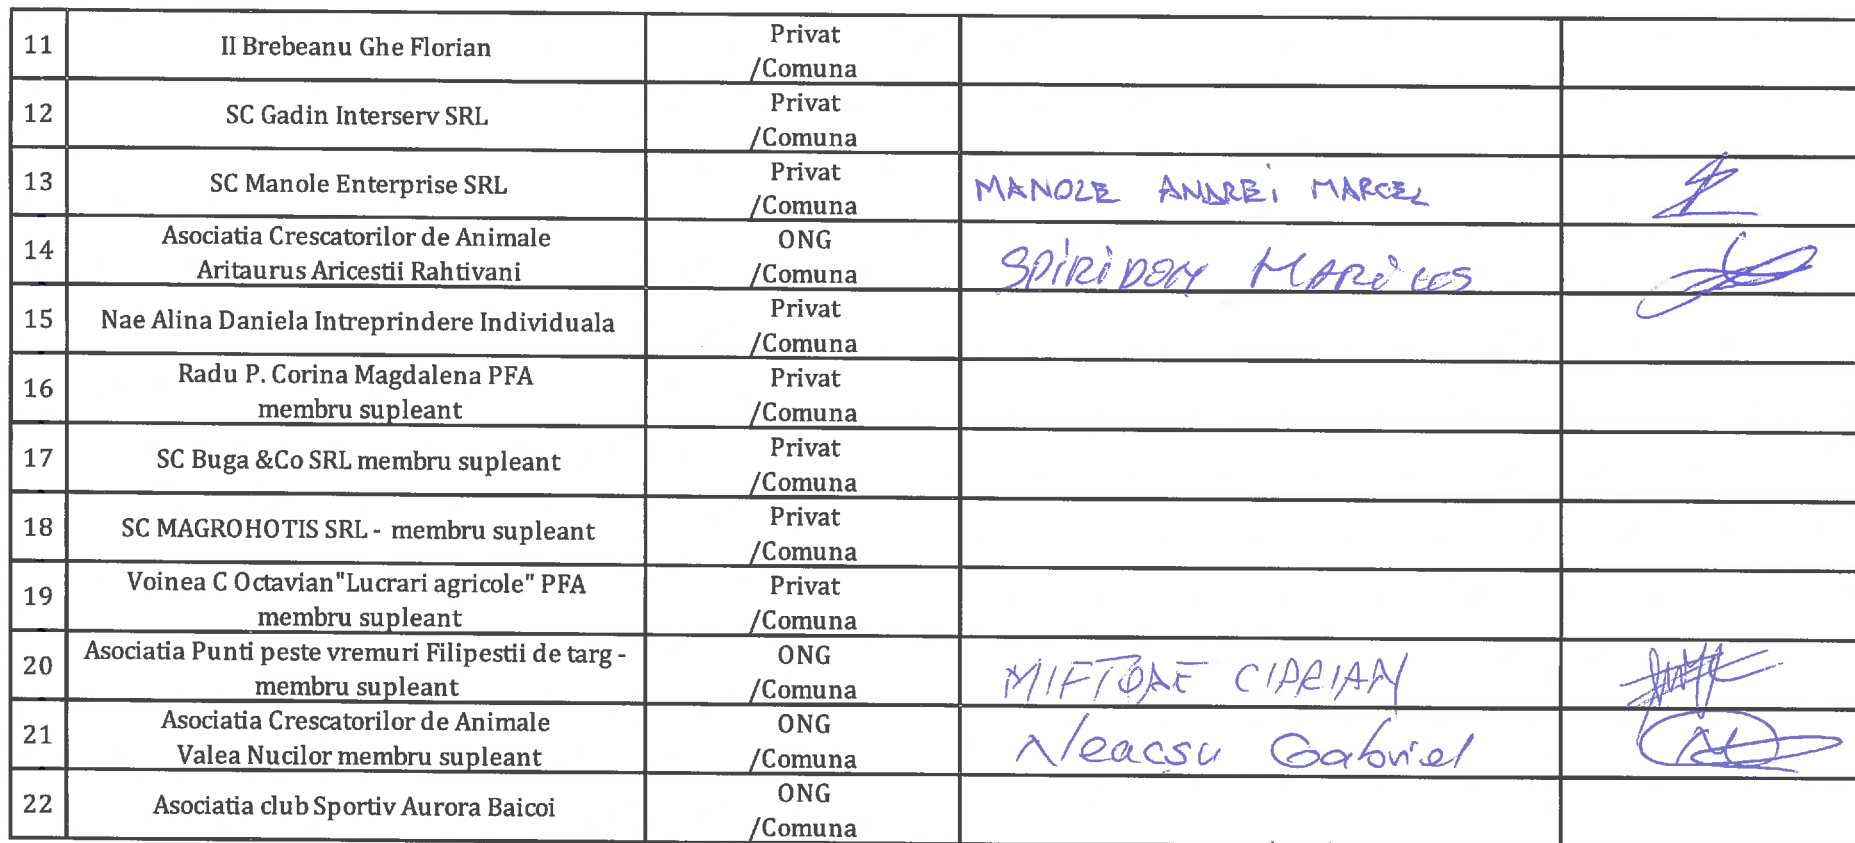 11 II Brebeanu Ghe Florian Privat
/Comuna
12 SC Gadin Interserv SRL Privat
/Comuna
13 SC Manole Enterprise SRL Privat MANOLE ANDREI MARCEL
/Comuna
14 Asociatia Crescatorilor de Animale ONG SPIRIDON
Aritaurus Aricestii Rahtivani /Comuna
15 Nae Alina Daniela Intreprindere Individuala Privat
/Comuna
16 Radu P. Corina Magdalena PFA Privat
membru supleant /Comuna
17 SC Buga &Co SRL membru supleant Privat
/Comuna
18 SC MAGROHOTIS SRL - membru supleant Privat
/Comuna
19 Voinea C Octavian"Lucrari agricole" PFA Privat
membru supleant /Comuna
20 Asociatia Punti peste vremuri Filipestii de targ - ONG MIFTODE CIPRIAN
membru supleant /Comuna
21 Asociatia Crescatorilor de Animale ONG Neacsu Gabriel
Valea Nucilor membru supleant /Comuna
22 Asociatia club Sportiv Aurora Baicoi ONG
/Comuna